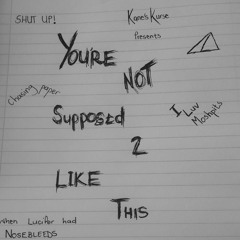 SHUT UP!
Kane's Kurse
Presents
YOU'RE
NOT
Chasing paper
Supposed
2
I Luv
Moshpits
LIKE
THIS
when Lucifer had
NOSEBLEEDS